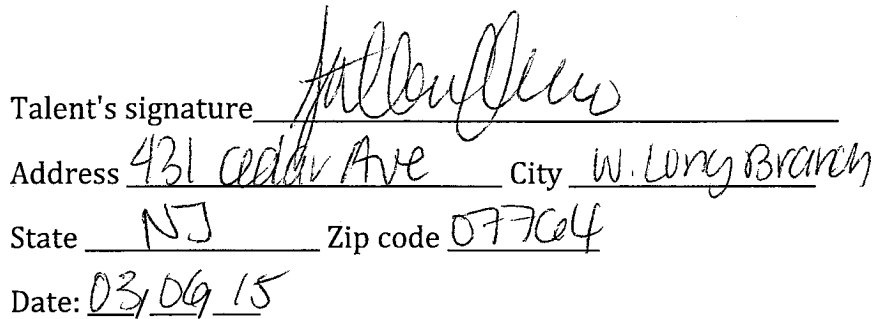 Talent's signature
Address 431 Cedar Ave City W. Long Branch
State NJ Zip code 07764
Date: 03/06/15